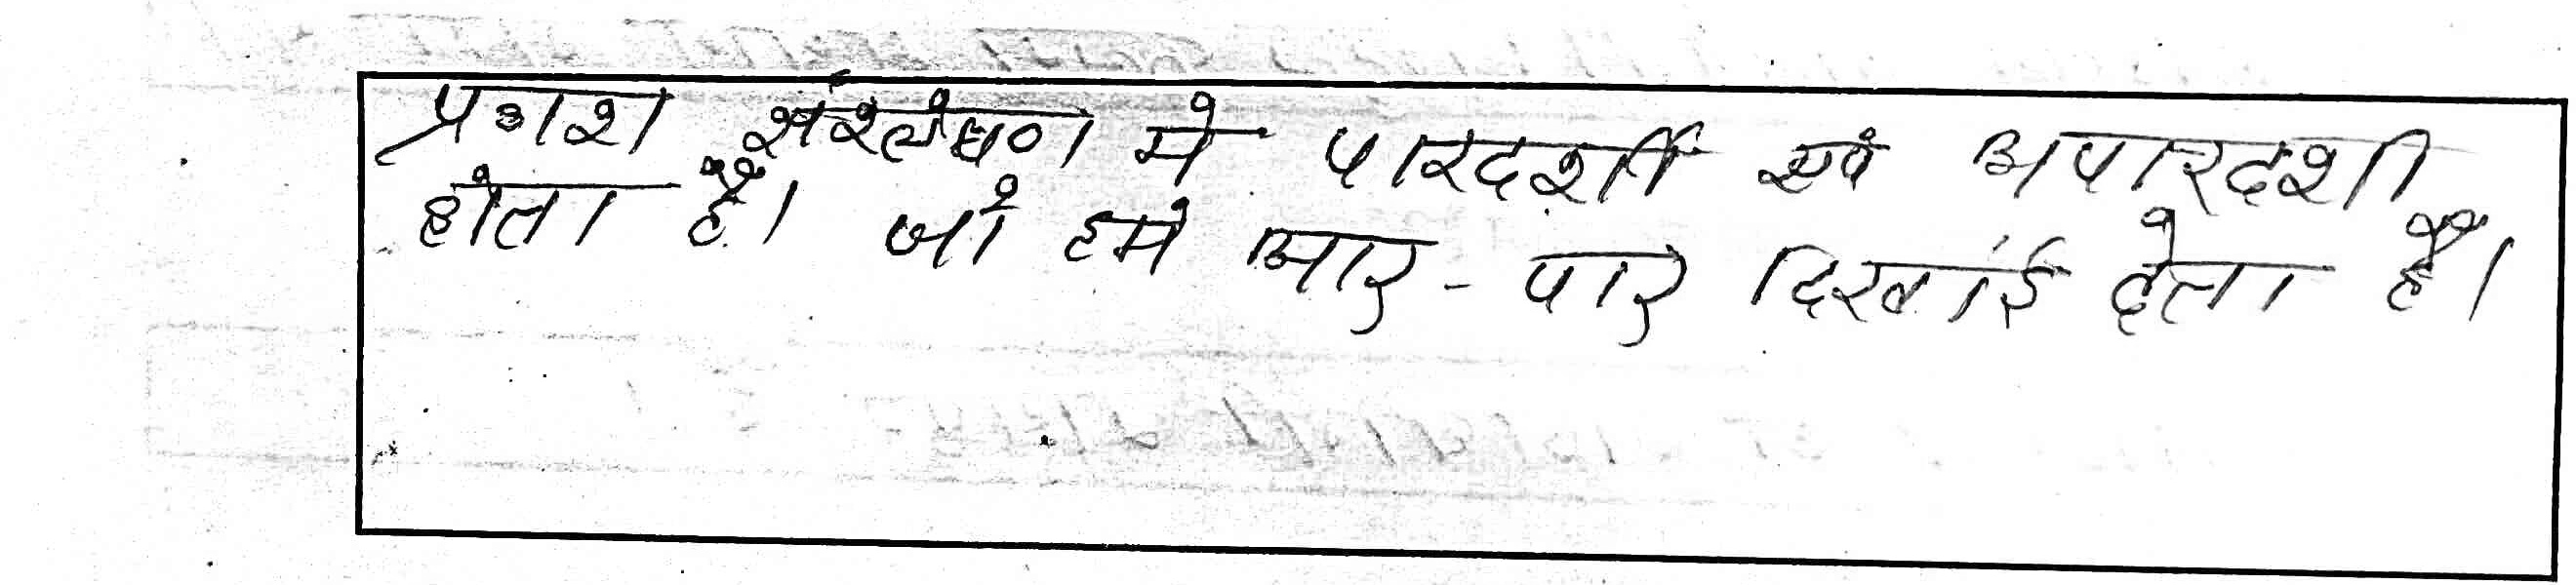 प्रकाश संश्लेषण मे पारदर्शी एवं अपारदर्शी
होता है। जो हमे आर-पार दिखाई देता है।